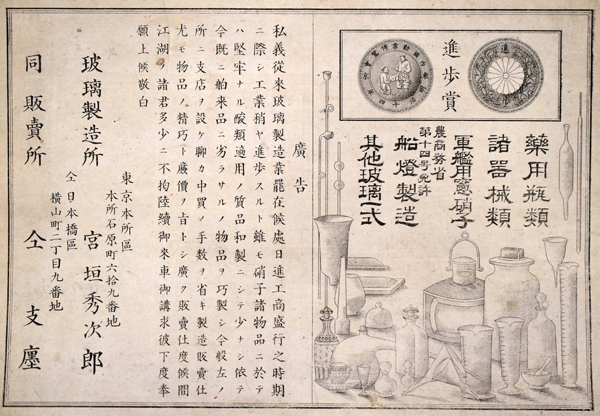 進歩賞
藥用瓶類
諸器械類
軍艦用窓硝子
農商務省
第十四号免許
船燈製造
其他玻璃一式
廣告
私義從来玻璃製造業罷在候處日進工商盛行之時期
ニ際シ工業稍ヤ進歩スルト雖モ硝子諸物品ニ於テ
ハ堅牢ナル酸類適用ノ質品和製ニシテ少ナシ依テ
今既ニ舶来品ニ劣ラサルノ物品ヲ巧製シ今般左ノ
所ニ支店ヲ設ケ聊カ中買ノ手数ヲ省キ製造販賣仕
尤モ物品ノ精巧ト廉價ノ旨トシ廣ク販賣仕度候間
江湖ノ諸君多少ニ不拘陸續御来車御講求彼下度奉
願上候敬白
東京本所區
本所石原町六拾九番地
玻璃製造所 宮垣秀次郎
仝日本橋區
横山町二丁目九番地
同販賣所 仝支廛